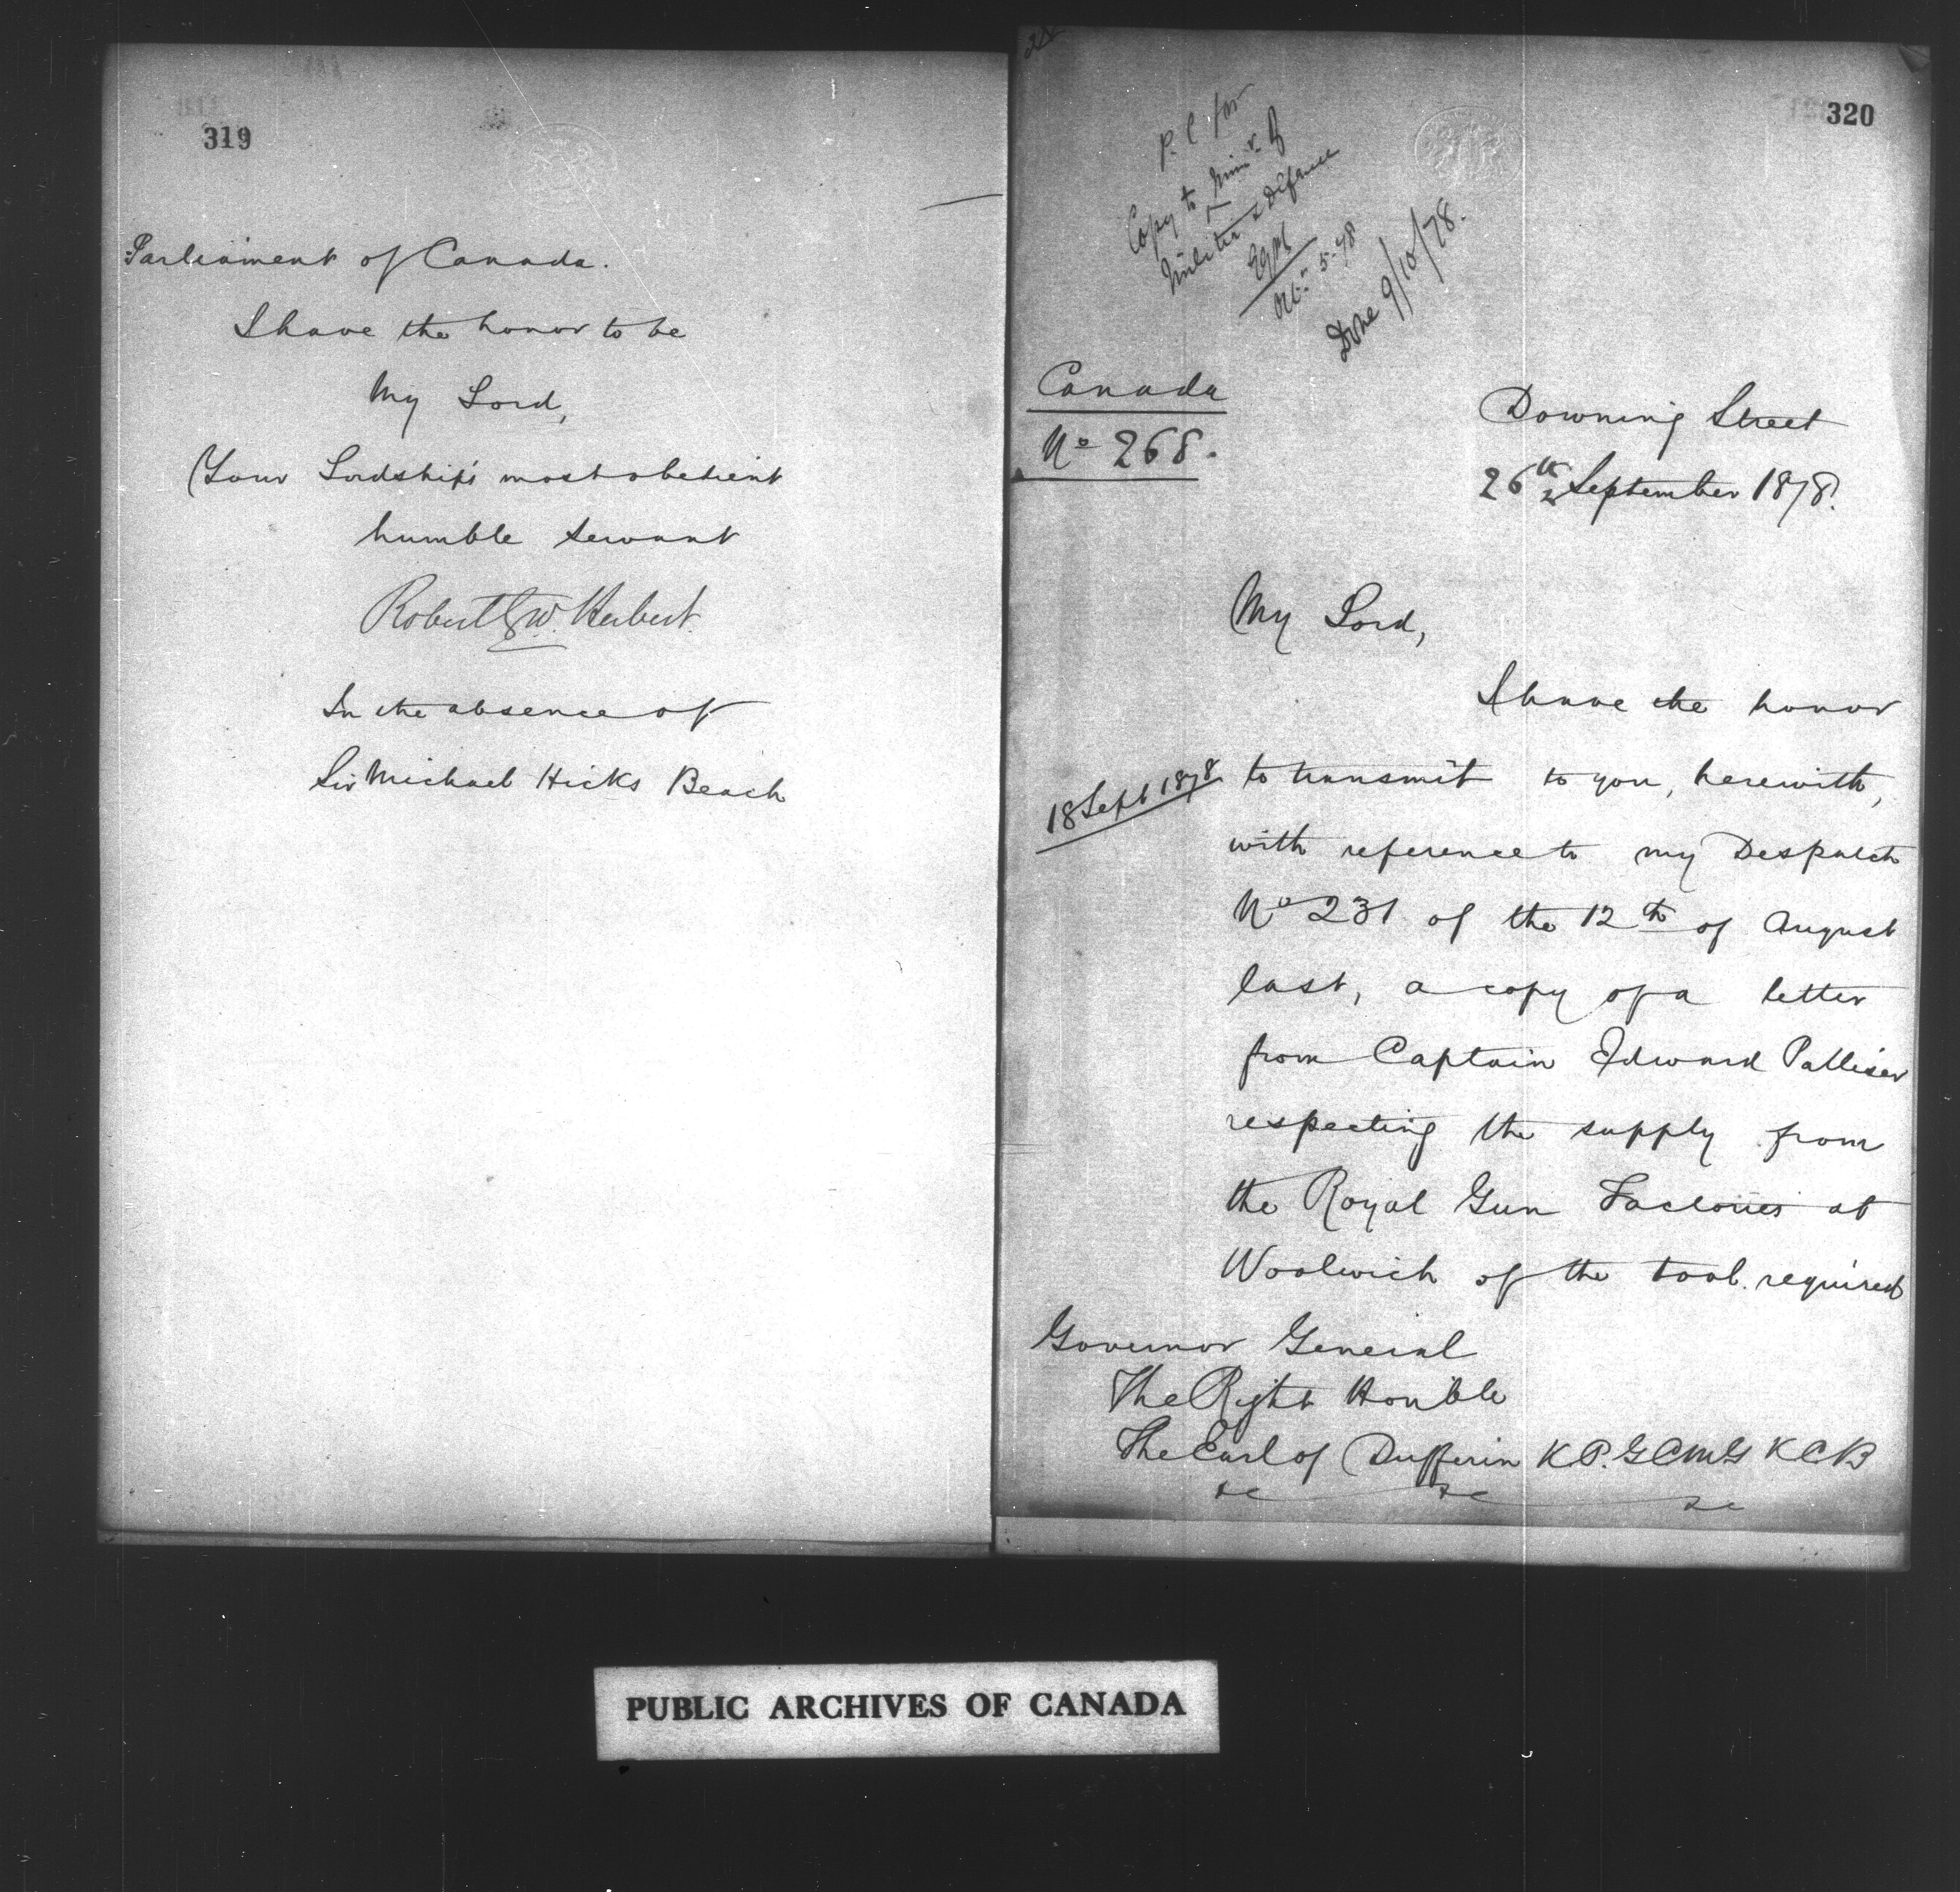 319
Parliament of Canada.
I have the honor to be
My Lord,
Your Lordship's most obedient
humble servant
Robert G. W. Herbert.
In the absence of
Sir Michael Hicks Beach
320
P. C. for
Copy to Minr. of
Militia & Defence
Octr. 5. 78
Done 9/10/78.
Canada
No 268.
Downing Street
26th September 1878.
My Lord,
I have the honor
18 Sept 1878
to transmit to you, herewith,
with reference to my Despatch
No 231 of the 12th of August
last, a copy of a letter
from Captain Edward Palliser
respecting the supply from
the Royal Gun Factories at
Woolwich of the tool required
Governor General
The Right Honble
The Earl of Dufferin K.P. G C M G K C B
&c &c &c
PUBLIC ARCHIVES OF CANADA